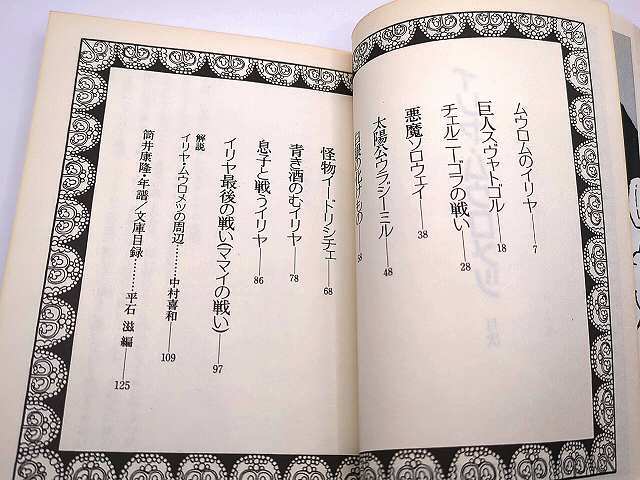 ムウロムのイリヤ――7
巨人スヴャトゴル――18
チェルニーゴフの戦い――28
悪魔ソロウェイ――38
太陽公ウラジーミル――48
怪物イードリシチェ――68
青き酒のむイリヤ――78
息子と戦うイリヤ――86
イリヤ最後の戦い(ママイの戦い)――97
解説
イリヤ・ムウロメツの周辺………中村喜和――109
筒井康隆・年譜/文庫目録………平石 滋 編――125